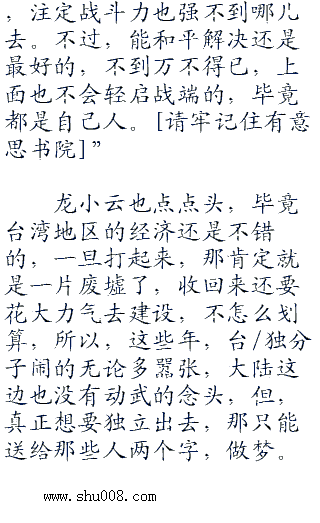 ，注定战斗力也强不到哪儿
去。不过，能和平解决还是
最好的，不到万不得已，上
面也不会轻启战端的，毕竟
都是自己人。[请牢记住有意
思书院]”
龙小云也点点头，毕竟
台湾地区的经济还是不错
的，一旦打起来，那肯定就
是一片废墟了，收回来还要
花大力气去建设，不怎么划
算，所以，这些年，台/独分
子闹的无论多嚣张，大陆这
边也没有动武的念头，但，
真正想要独立出去，那只能
送给那些人两个字，做梦。
www.shu008.com